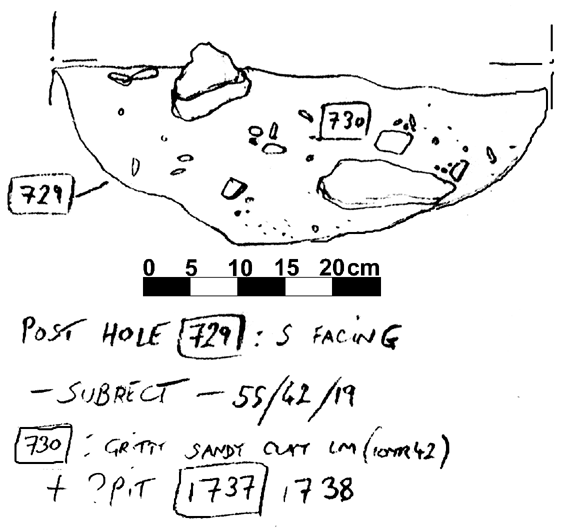 730
729
0 5 10 15 20cm
POST HOLE 729 : S FACING
- SUBRECT - 55/42/19
730 : GRITTY SANDY CLAY LM (10YR42)
+ ?PIT 1737 1738